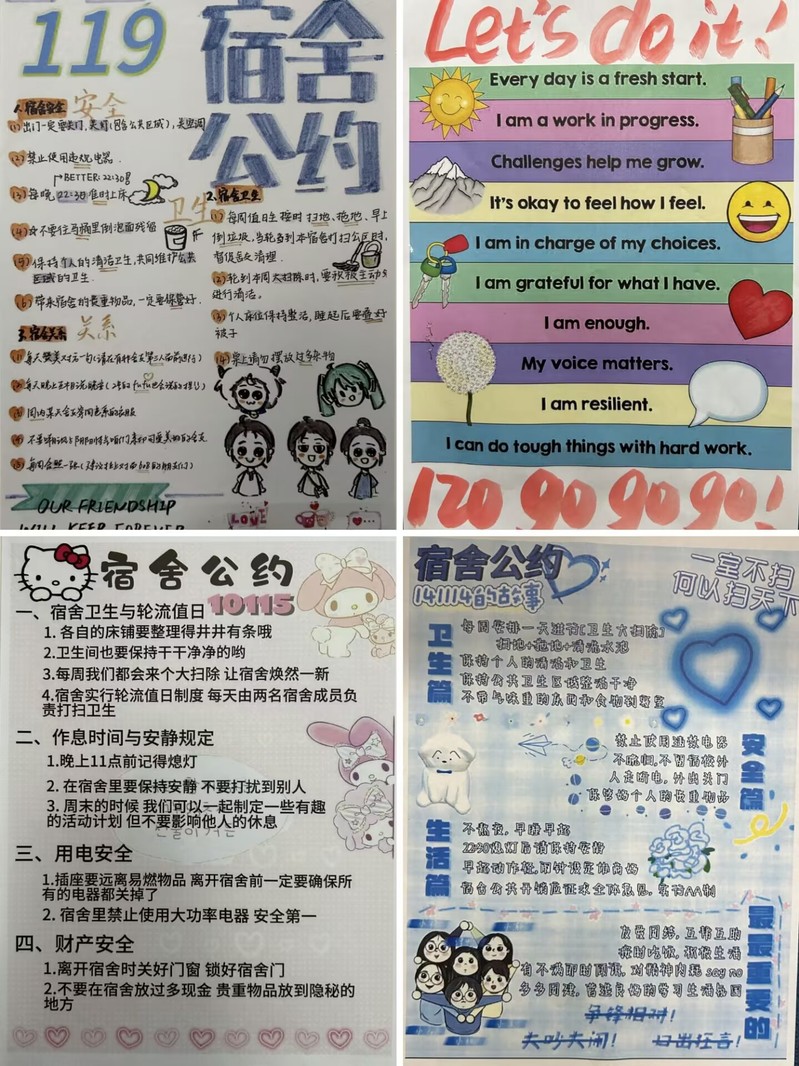 119
宿舍
公约
1.宿舍安全
安全
(2)禁止使用违规电器.
BETTER: 22:30
(3)每晚22:30准时上床
(4)不要往马桶里倒泡面残留
(5)保持个人的清洁卫生,共同维护公共
区域的卫生.
(6)带来宿舍的贵重物品,一定要保管好.
卫生
2.宿舍卫生
(1)每周值日生按时扫地、拖地、早上
倒垃圾,当轮到本宿舍打扫公区时,
督促舍友清理.
(2)轮到本周大扫除时,要积极主动
进行清洁。
(3)个人床位保持整洁,睡起后要叠好
被子
(4)桌上请勿摆放过多杂物
3.宿舍关系
关系
OUR FRIENDSHIP
WILL KEEP FOREVER
LOVE
Let's do it!
Every day is a fresh start.
I am a work in progress.
Challenges help me grow.
It's okay to feel how I feel.
I am in charge of my choices.
I am grateful for what I have.
I am enough.
My voice matters.
I am resilient.
I can do tough things with hard work.
120 go go go go!
宿舍公约
10115
一、宿舍卫生与轮流值日
1.各自的床铺要整理得井井有条哦
2.卫生间也要保持干干净净的哟
3.每周我们都会来个大扫除 让宿舍焕然一新
4.宿舍实行轮流值日制度 每天由两名宿舍成员负
责打扫卫生
二、作息时间与安静规定
1.晚上11点前记得熄灯
2. 在宿舍里要保持安静 不要打扰到别人
3. 周末的时候 我们可以一起制定一些有趣
的活动计划 但不要影响他人的休息
三、用电安全
1.插座要远离易燃物品 离开宿舍前一定要确保所
有的电器都关掉了
2. 宿舍里禁止使用大功率电器 安全第一
四、财产安全
1.离开宿舍时关好门窗 锁好宿舍门
2.不要在宿舍放过多现金 贵重物品放到隐秘的
地方
宿舍公约
141114的故事
一室不扫
何以扫天下
卫生篇
每周安排一天进行[卫生大扫除]
扫地+拖地+清洗水渍
保持个人的清洁和卫生
保持公共卫生区域整洁干净
不带气味重的东西和食物到寝室
安全篇
禁止使用违禁电器
不晚归,不留宿校外
人走断电,外出关门
保管好个人的贵重物品
生活篇
不熬夜,早睡早起
22:30熄灯后请保持安静
早起动作轻,闹钟设定协商好
宿舍公共开销应征求全体意见,实行AA制
最最重要的
友爱团结,互帮互助
按时吃饭,积极生活
有不满即时提醒,对精神内耗 say no
多多团建,营造良好的学习生活氛围
争锋相对!
大吵大闹!
口出狂言!